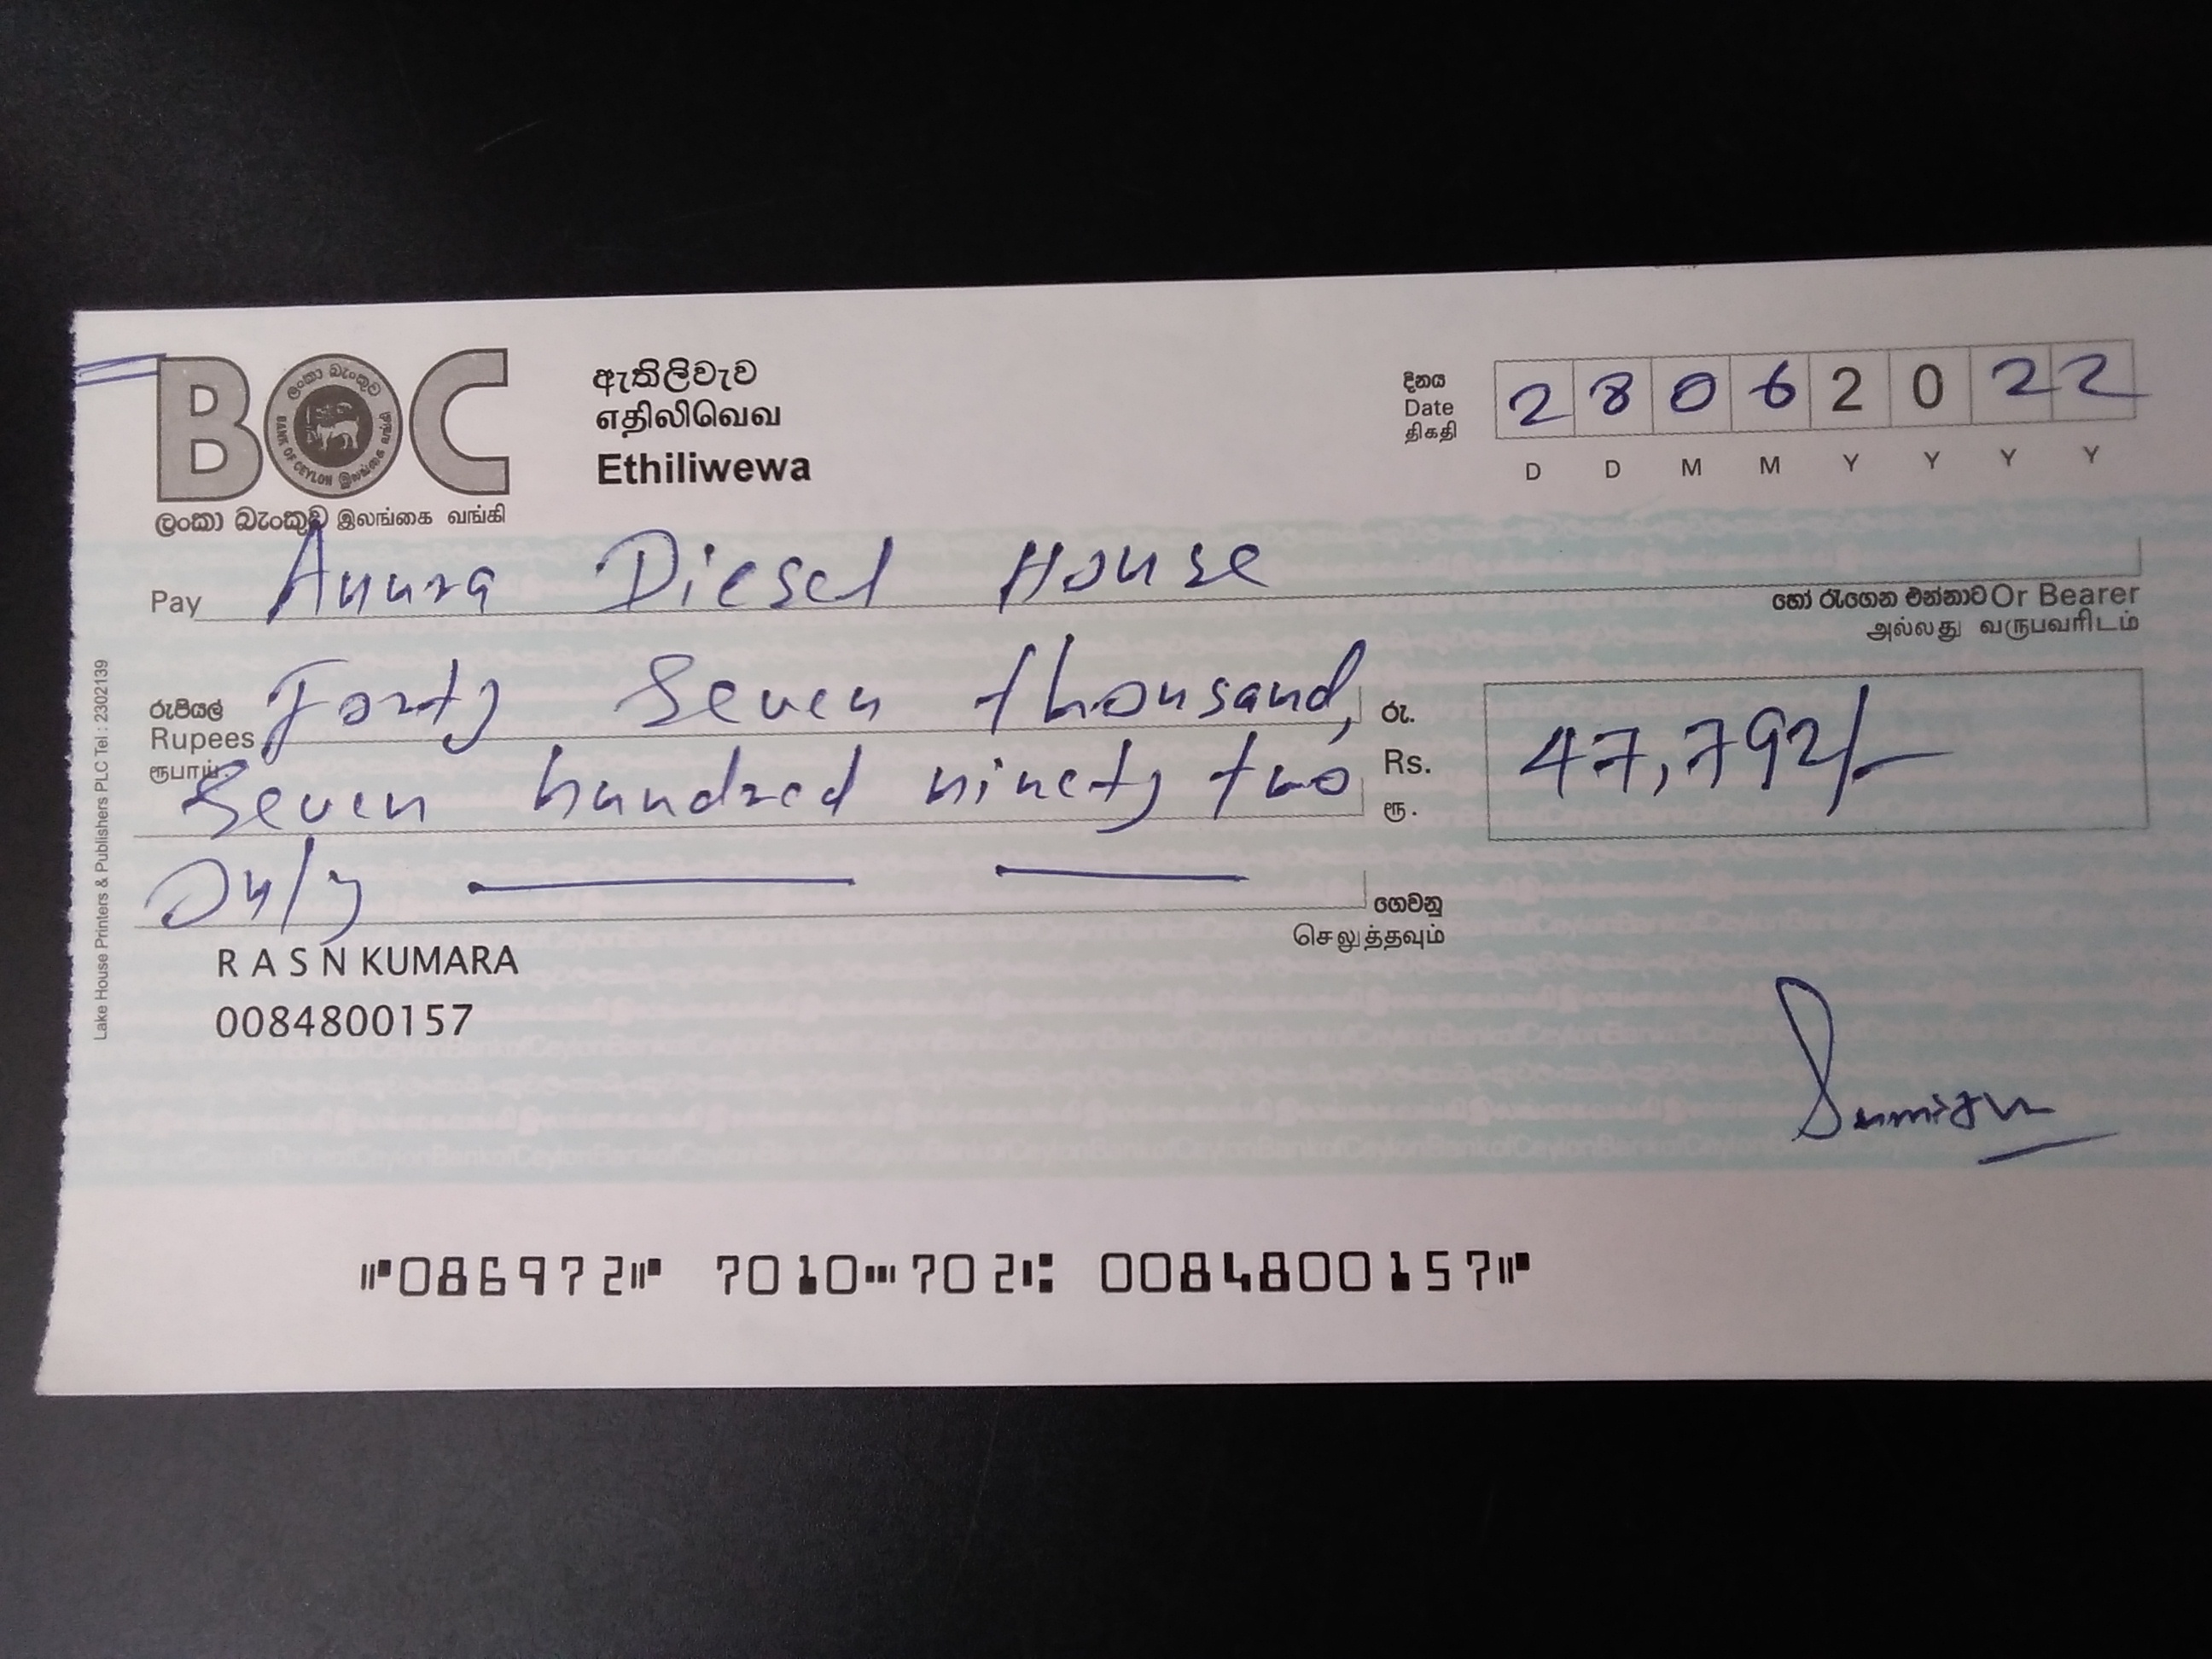 BOC
ලංකා බැංකුව இலங்கை வங்கி
BANK OF CEYLON
ඇතිලිවැව
எதிலிவெவ
Ethiliwewa
දිනය
Date
திகதி
2 8 0 6 2 0 2 2
D D M M Y Y Y Y
Pay Anura Diesel House
හෝ රැගෙන එන්නාට Or Bearer
அல்லது வருபவரிடம்
රුපියල්
Rupees
ரூபாய்
Forty Seven thousand,
Seven hundred ninety two
Only
රු.
Rs.
ரூ.
47,792/-
ගෙවනු
செலுத்தவும்
R A S N KUMARA
0084800157
Lake House Printers & Publishers PLC Tel : 2302139
⑈086972⑈ 7010⑉702⑆ 0084800157⑈